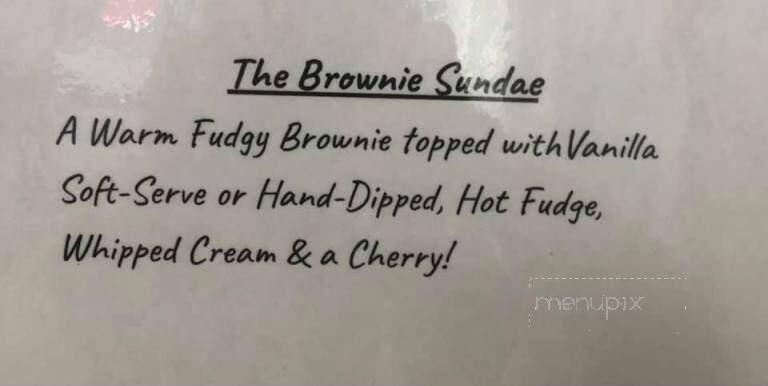 The Brownie Sundae
A Warm Fudgy Brownie topped with Vanilla
Soft-Serve or Hand-Dipped, Hot Fudge,
Whipped Cream & a Cherry!
menupix